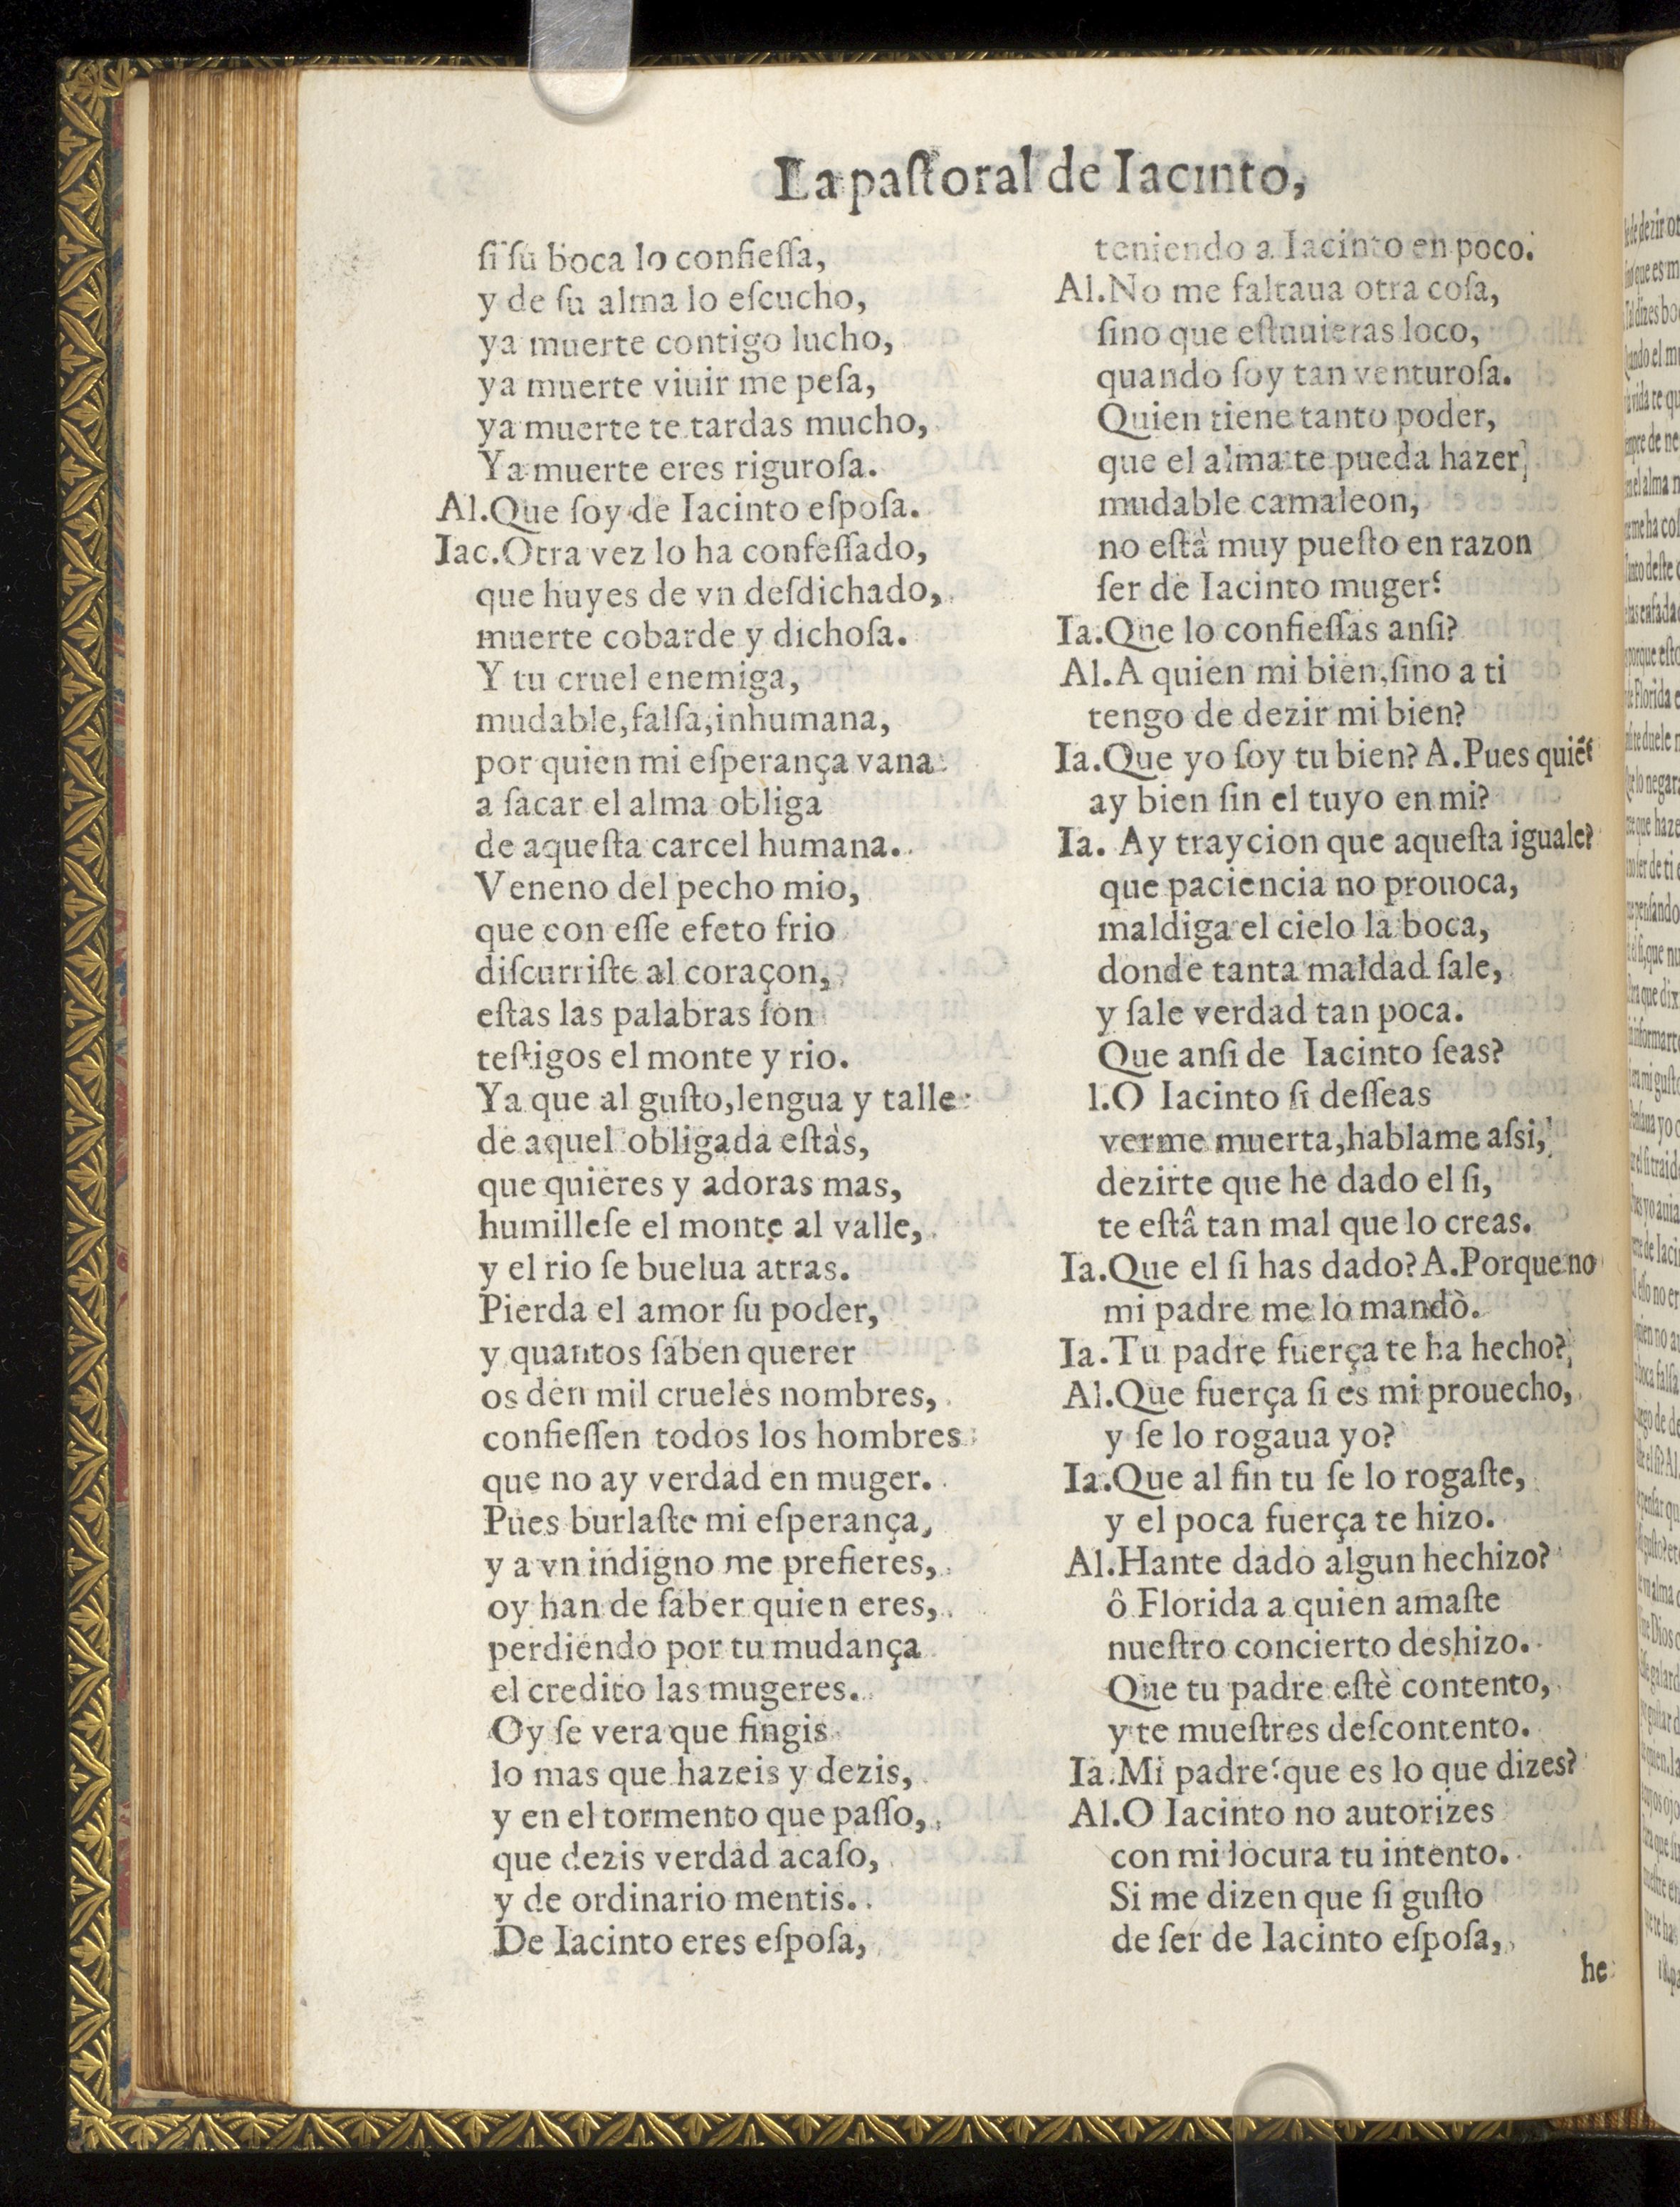 La pastoral de Iacinto,
si su boca lo confiessa,
y de su alma lo escucho,
ya muerte contigo lucho,
ya muerte viuir me pesa,
ya muerte te tardas mucho,
Ya muerte eres rigurosa.
Al.Que soy de Iacinto esposa.
Iac.Otra vez lo ha confessado,
que huyes de vn desdichado,
muerte cobarde y dichosa.
Y tu cruel enemiga,
mudable, falsa, inhumana,
por quien mi esperança vana
a sacar el alma obliga
de aquesta carcel humana.
Veneno del pecho mio,
que con esse efeto frio
discurriste al coraçon,
estas las palabras son
testigos el monte y rio.
Ya que al gusto, lengua y talle
de aquel obligada estàs,
que quieres y adoras mas,
humillese el monte al valle,
y el rio se buelua atras.
Pierda el amor su poder,
y quantos saben querer
os den mil crueles nombres,
confiessen todos los hombres
que no ay verdad en muger.
Pues burlaste mi esperança,
y a vn indigno me prefieres,
oy han de saber quien eres,
perdiendo por tu mudança
el credito las mugeres.
Oy se vera que fingis
lo mas que hazeis y dezis,
y en el tormento que passo,
que dezis verdad acaso,
y de ordinario mentis.
De Iacinto eres esposa,
teniendo a Iacinto en poco.
Al.No me faltaua otra cosa,
sino que estuuieras loco,
quando soy tan venturosa.
Quien tiene tanto poder,
que el alma te pueda hazer
mudable camaleon,
no està muy puesto en razon
ser de Iacinto muger?
Ia.Que lo confiessas ansi?
Al.A quien mi bien, sino a ti
tengo de dezir mi bien?
Ia.Que yo soy tu bien? A.Pues quiē?
ay bien sin el tuyo en mi?
Ia. Ay traycion que aquesta iguale?
que paciencia no prouoca,
maldiga el cielo la boca,
donde tanta maldad sale,
y sale verdad tan poca.
Que ansi de Iacinto seas?
l.O Iacinto si desseas
verme muerta, hablame assi,
dezirte que he dado el si,
te estâ tan mal que lo creas.
Ia.Que el si has dado? A.Porque no
mi padre me lo mandò.
Ia.Tu padre fuerça te ha hecho?
Al.Que fuerça si es mi prouecho,
y se lo rogaua yo?
Ia.Que al fin tu se lo rogaste,
y el poca fuerça te hizo.
Al.Hante dado algun hechizo?
ô Florida a quien amaste
nuestro concierto deshizo.
Que tu padre estè contento,
y te muestres descontento.
Ia.Mi padre? que es lo que dizes?
Al.O Iacinto no autorizes
con mi locura tu intento.
Si me dizen que si gusto
de ser de Iacinto esposa,
he